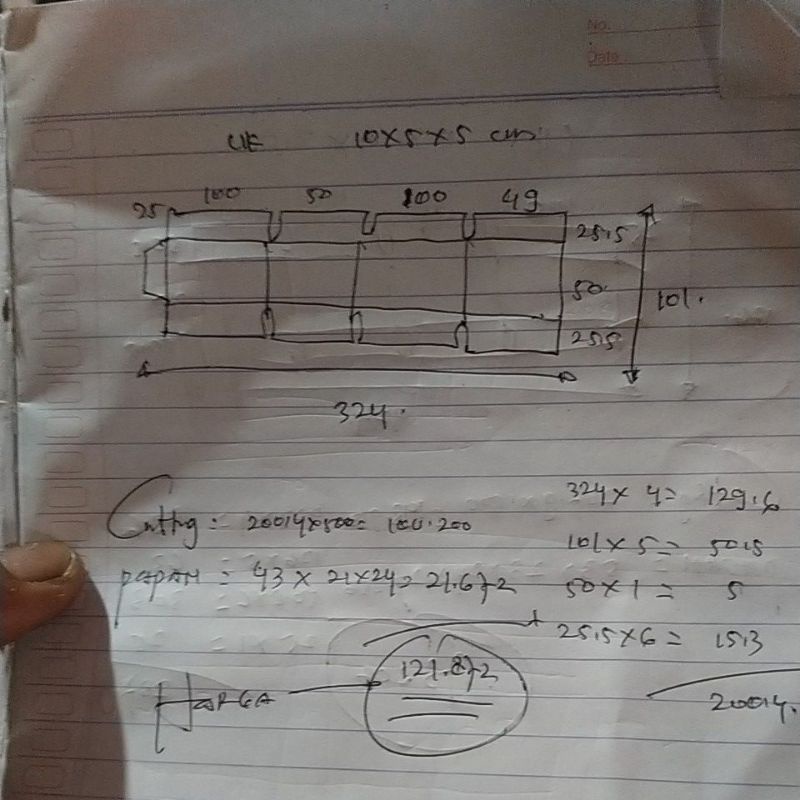 No.
Date
UE 10x5x5 cm
25 100 50 100 49
25.5
50.
101.
25.5
324.
324 x 4 = 129.6
Cutting = 200.4x500= 100.200
101 x 5 = 50.5
papan = 43 x 21x24= 21.672
50 x 1 = 5
25.5 x 6 = 15.3
HARGA 121.872
200.4.